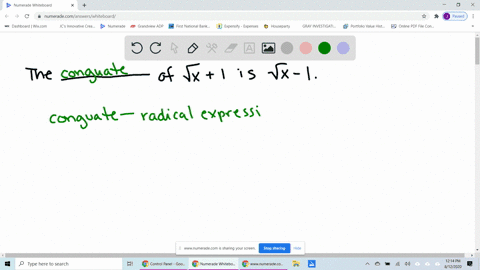 Numerade Whiteboard
numerade.com/answers/whiteboard/
Paused
Dashboard | Wix.com
Numerade
Grammarly ADP
First National Bank
Expensify - Expenses
Houseparty
GRAY INVESTIGATI
Portfolio Value Hist
Online PDF File Co
The conguate of √x + 1 is √x − 1.
conguate — radical expressi
www.numerade.com is sharing your screen.
Stop sharing
Hide
Type here to search
Control Panel - Goo
Numerade Whitebo
www.numerade.co
12:14 PM
8/13/2020